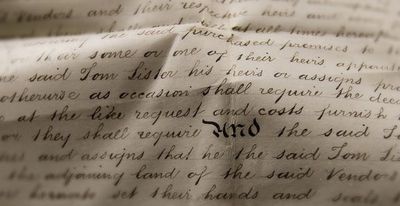 Vendors and their respective heirs and
the said purchased premises to
or their some or one of their heirs
the said Tom Lister his heirs or assigns
otherwise as occasion shall require the
at the like request and costs furnish
or they shall require And the said
and assigns that he the said Tom
the adjoining land of the said Vendors
set their hands and seals